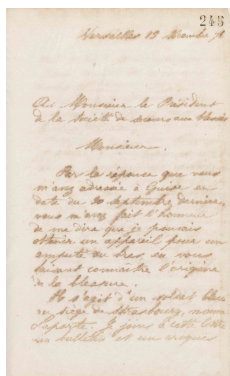 246
Versailles 12 Décembre 71
A Monsieur le Président
de la Société de secours aux blessés
Monsieur,
Par la réponse que vous
m'avez adressée à Guise en
date du 30 septembre dernier,
vous m'avez fait l'honneur
de me dire que je pouvais
obtenir un appareil pour un
amputé du bras en vous
faisant connaître l'origine
de la blessure.
Il s'agit d'un soldat blessé
au siège de Strasbourg, nommé
Laporte. Je joins à cette lettre
un bulletin et un croquis